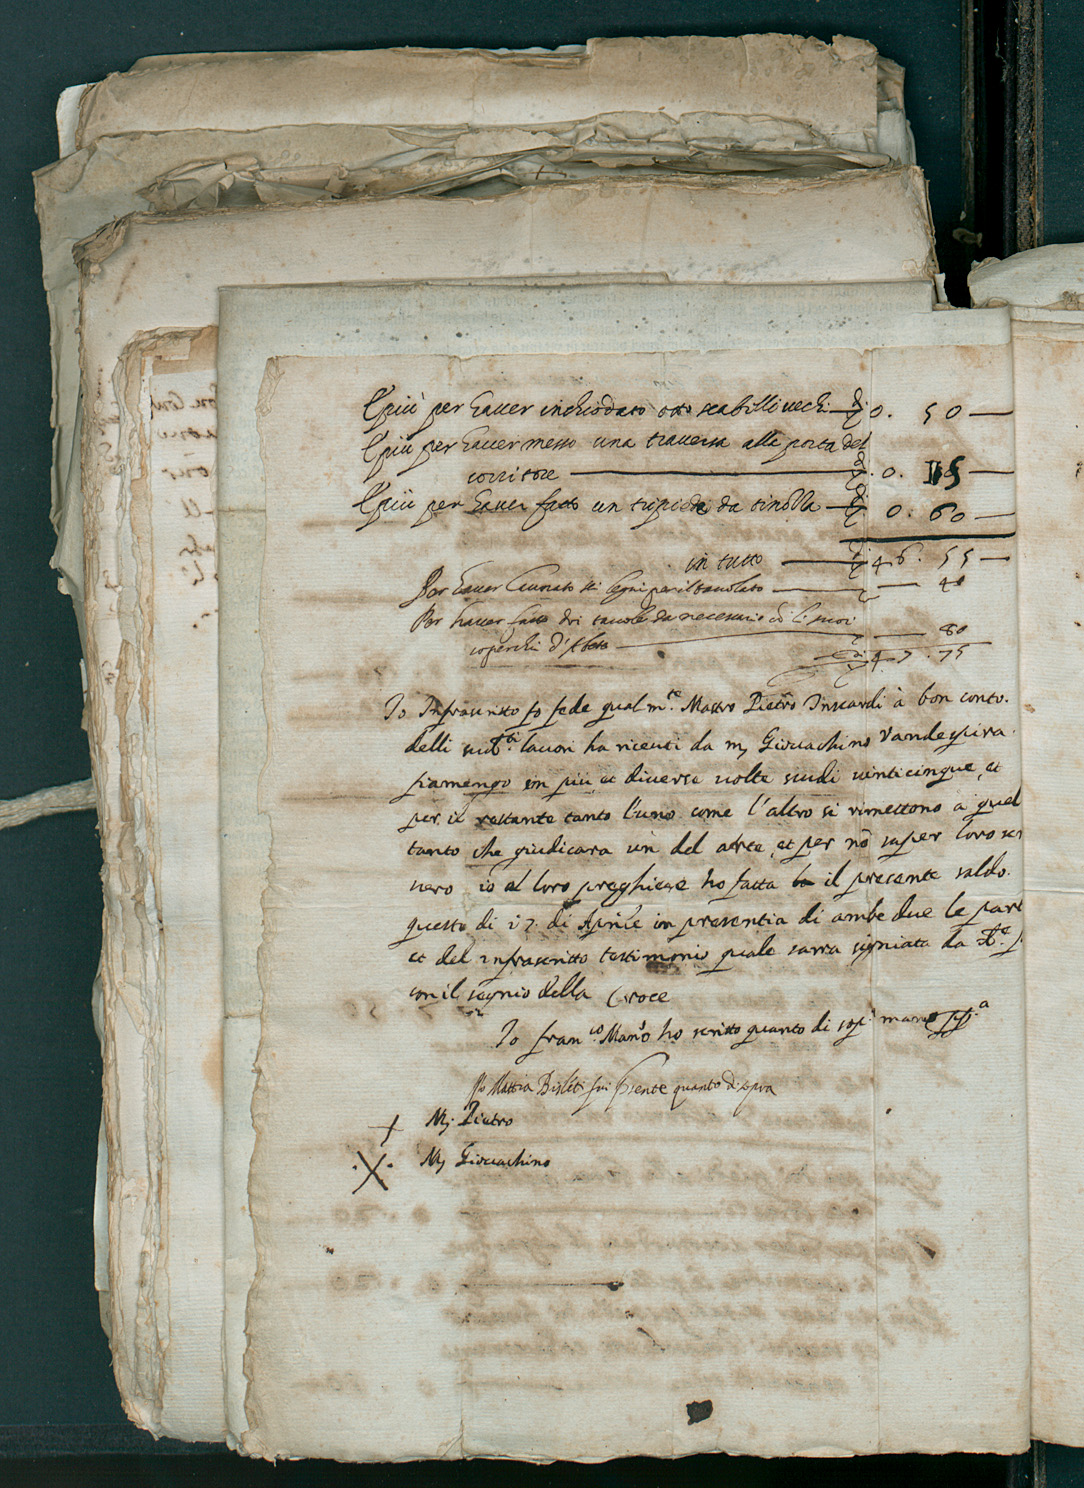 E più per hauer inchiodato otto scabilli uechi — 0. 50 —
E più per hauer messo una trauersa alla porta del
corritore — 0. 15 —
E più per hauer fatto un tripiede da tinozza — 0. 60 —
in tutto — 46. 55 —
Per hauer leuorato sei legni per il tauolato — 40
Per hauer fatto doi tauole da necessario cō li suoi
coperchi d'Abeto — 80
47. 75
Io Infrascritto fo fede qual m.te Mastro Pietro Inscardi à bon conto
delli sud.ti lauori ha riceuti da m. Giouachino Vandepura
fiamengo in più et diuerse uolte scudi uinticinque, et
per il restante tanto l'uno come l'altro si rimettono a quel
tanto che giudicara un del arte, et per nō saper loro scri
uero io al loro preghiere ho fatta il presente saldo
questo di 17. di Aprile in presentia di ambe due le part
et del infrascritto testimonio quale sarra signiata da
con il segnio della Croce
Io fran.co Man. ho scritto quanto di sop.a mano pp.a
Io Mattia Bisleti fui presente quanto di sopra
+ M. Pietro
.X. M. Giouachino